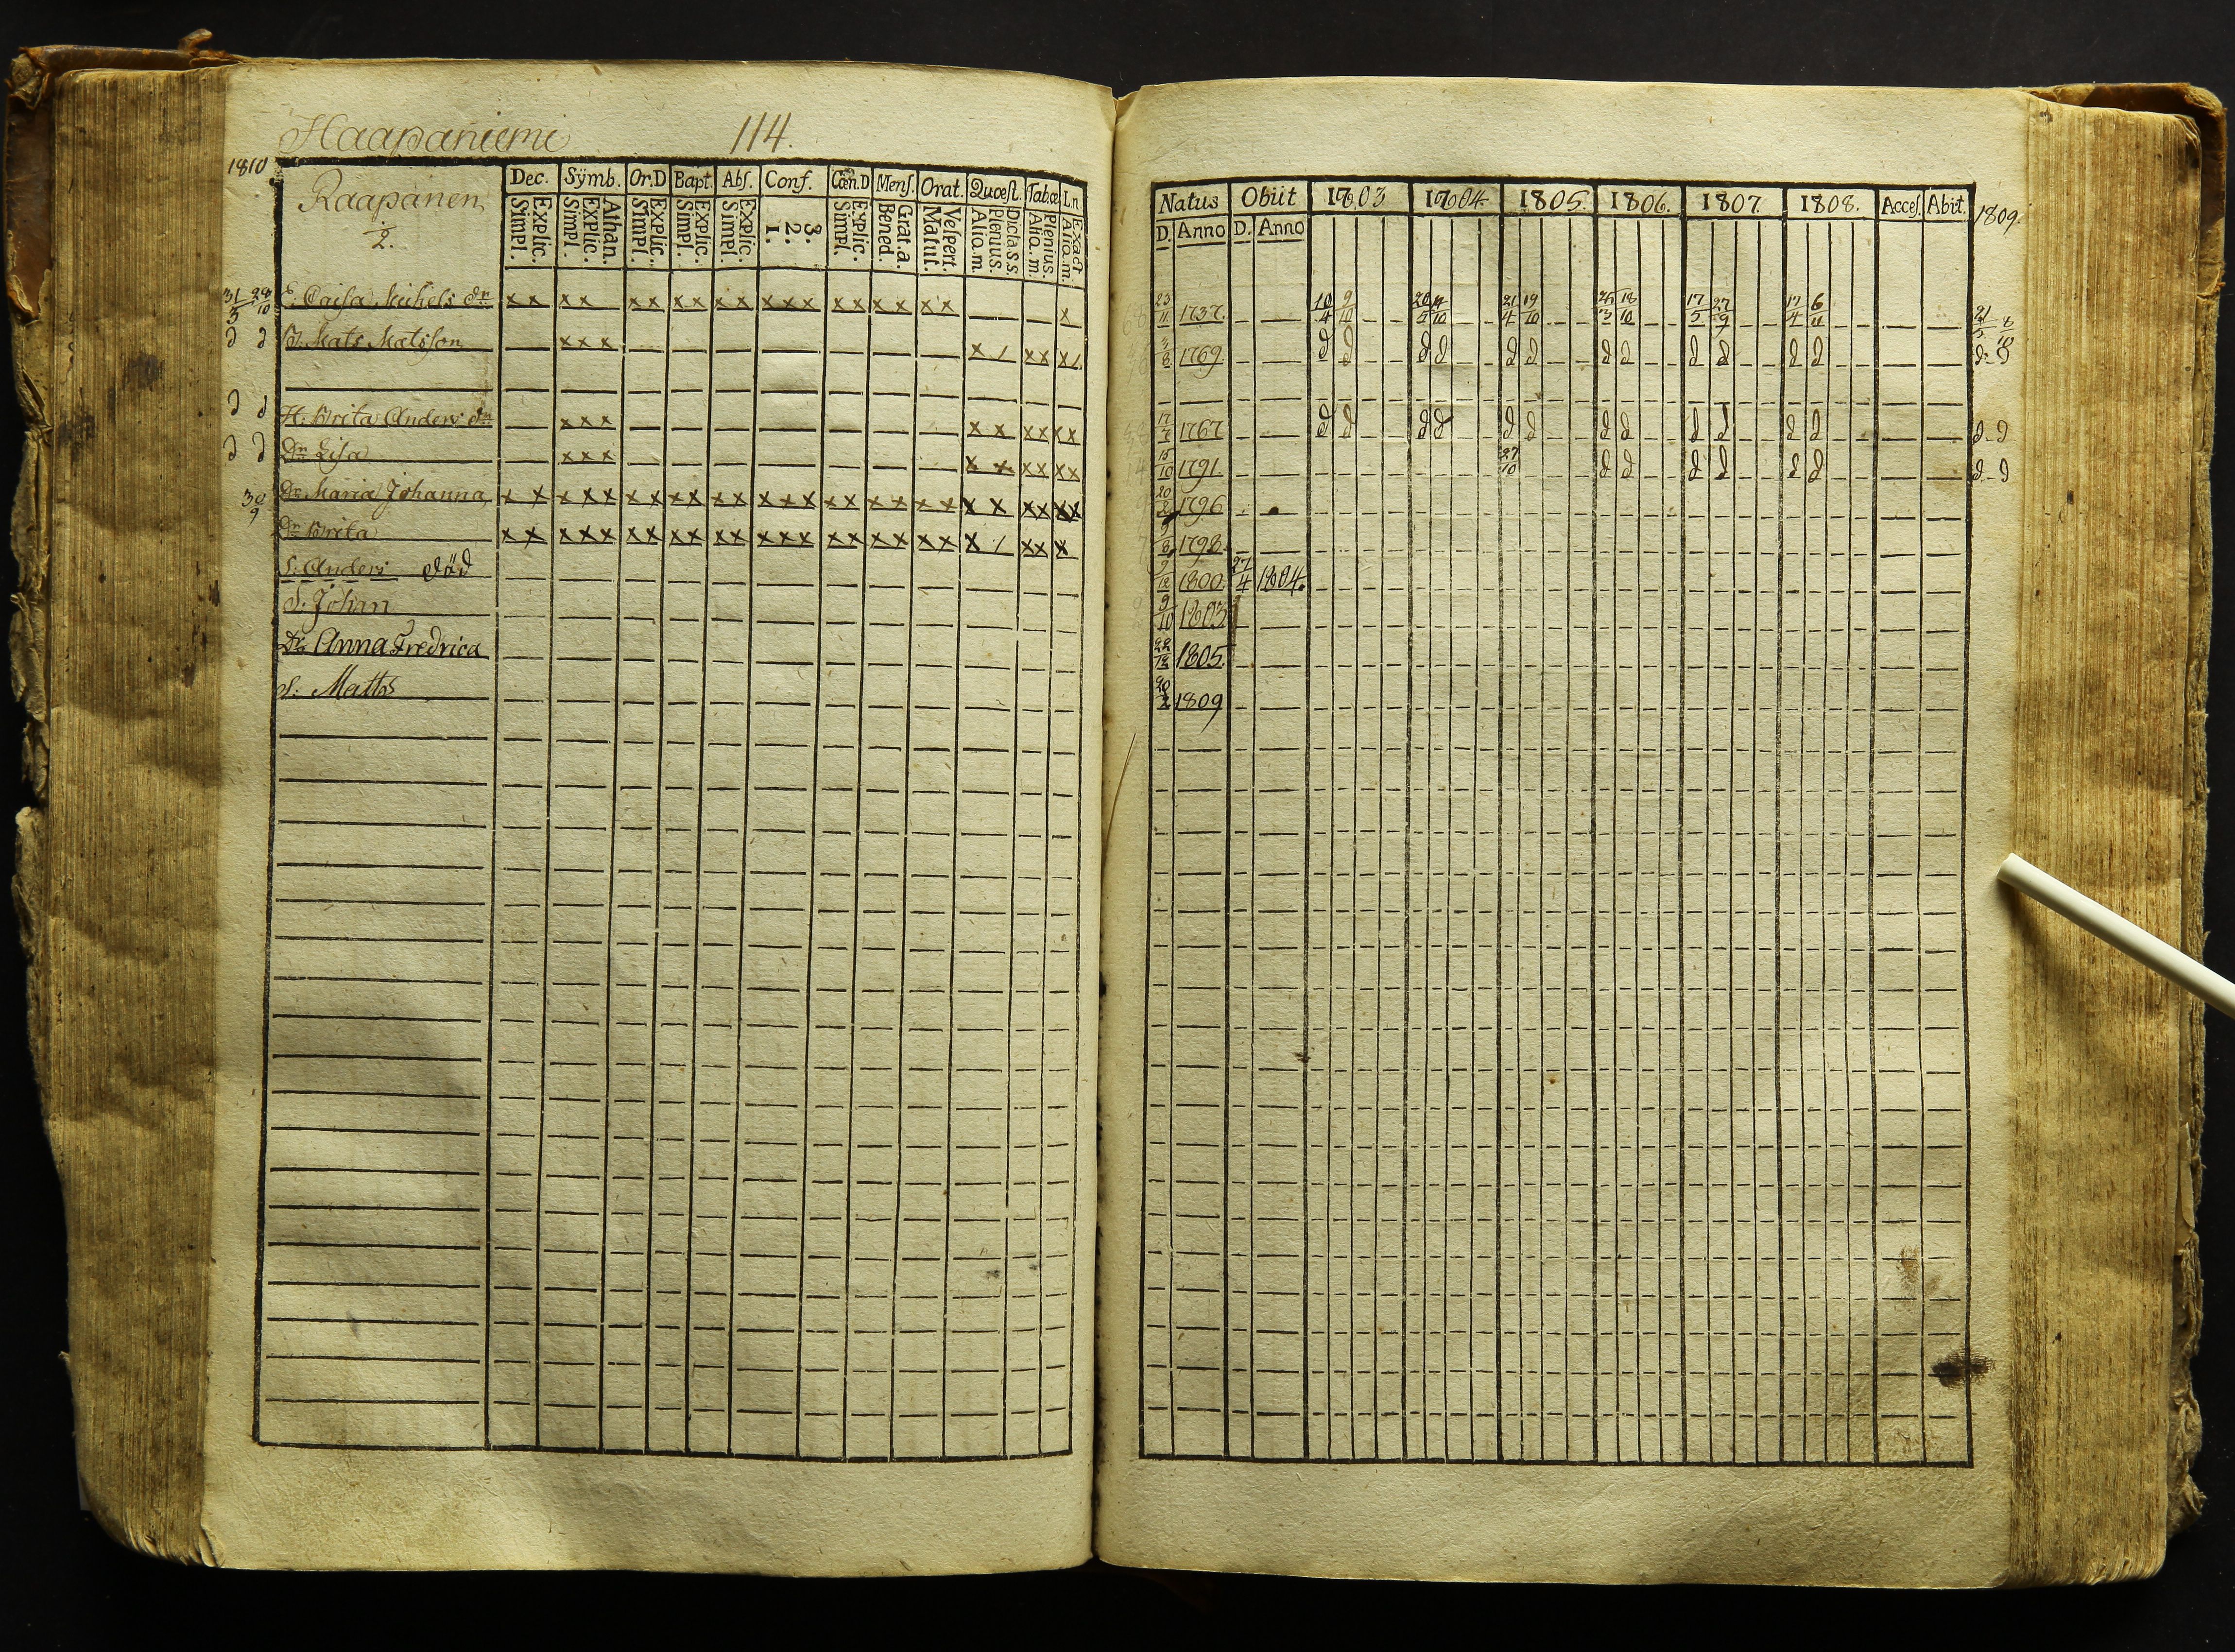 Haapaniemi 114.
1810
Raapanen
1/2.
Dec. Sÿmb. Or.D Bapt. Abs. Conf. Cœn.D Mens. Orat. Quœst. Tabœ Ln
Explic. Simpl. Athan. Explic. Simpl. Explic. Simpl. Explic. Simpl. Explic. Simpl. 3. 2. 1. Explic. Simpl. Grat.a. Bened. Vespert. Matut. Dicta.s.s. Plenius. Alio.m. Plenius. Alio.m. Exact Alio.m.
Natus Obiit 1803 1804 1805. 1806. 1807. 1808. Acces. Abit. 1809.
D. Anno D. Anno
31/3 28/10 E. Caisa Michels dr x x x x x x x x x x x x x x x x x x x x 23/11 1737. 10/4 9/10 20/5 4/10 21/4 19/10 25/3 18/10 17/5 27/9 17/4 6/11 21/5 8/10
d d B. Mats Matsson x x x x / x x x / 3/8 1769. d d d d d d d d d d d d d d
d d H. Brita Anders dr x x x x x x x x x 17/7 1767 d d d d d d d d d d d d d d
d d Dr Lisa x x x x x x x x x 15/10 1791. 27/10 d d d d d d d d
30/9 Dr Maria Johanna x x x x x x x x x x x x x x x x x x x x x x x x x x x 20/2 1796
Dr Brita x x x x x x x x x x x x x x x x x x x x x x / x x x 9/8 1798.
S. Anders död 9/12 1800. 27/4 1804.
S. Johan 9/10 1803
Dr Anna Fredrica 22/12 1805.
S. Matts 20/2 1809